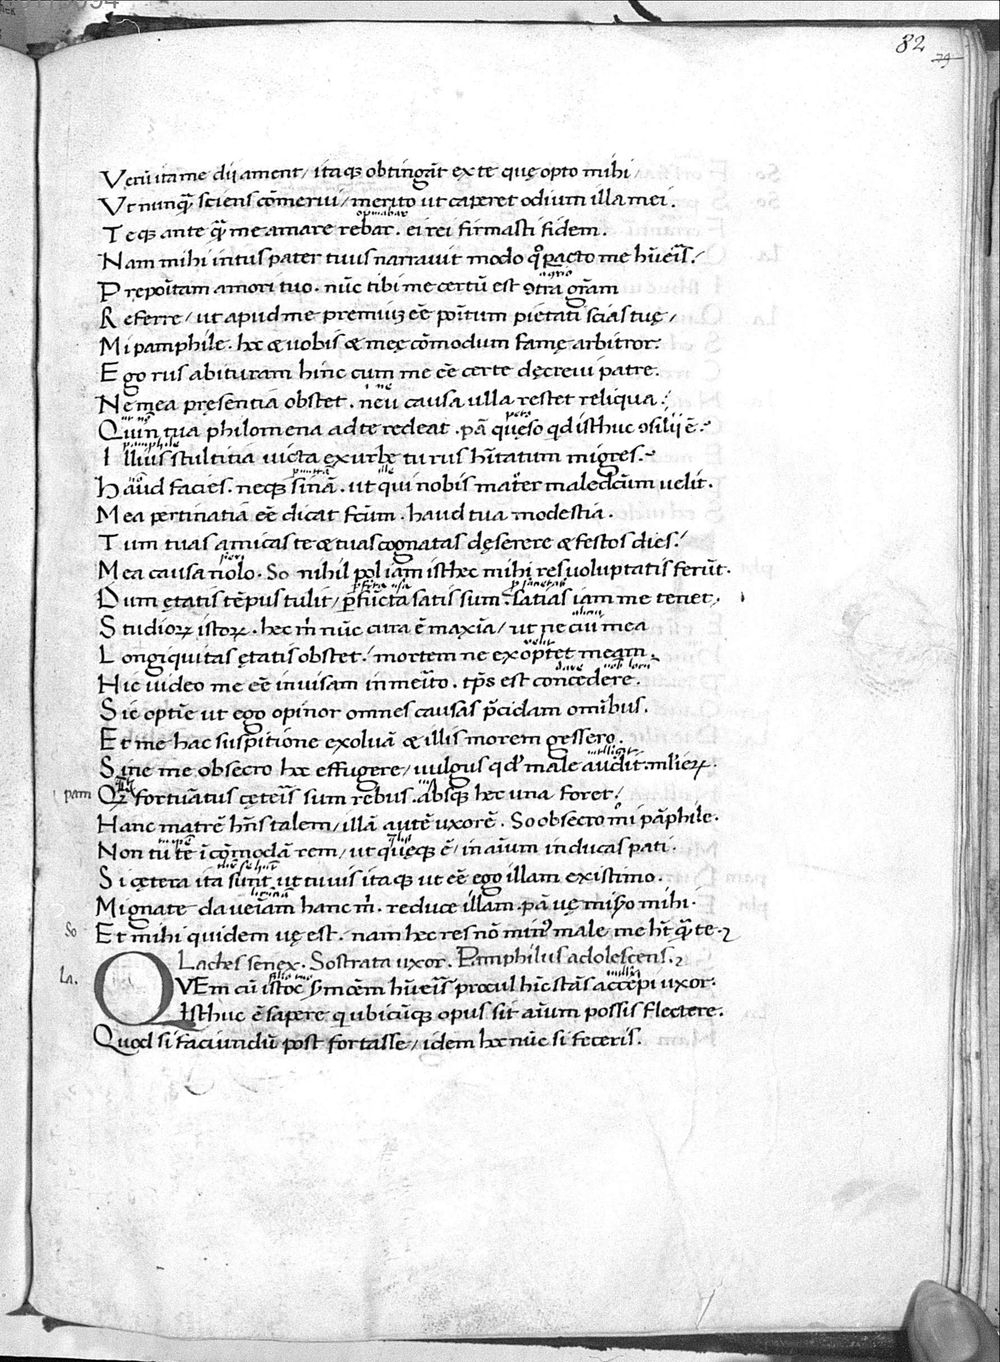 82
79
Verũ ita me dij ament / itaqꝫ obtingãt ex te quę opto mihi
Vt nunq̃ sciens cõmerui / merito ut caperet odium illa mei.
opinabar
Teqꝫ ante q̃ me amare rebar. ei rei firmasti fidem.
Nam mihi intus pater tuus narravit modo quo pacto me hũeĩs.
Prepoĩtam amori tuo. nũc tibi me certũ est ↄtra gr̃am
Referre / ut apud me premiũ eẽ poĩtum pietati scias tuę /
Mi pamphile. hec & uobis & meę cõmodum famę arbitror.
Ego rus abituram hinc cum me eẽ certe dęcreui patre.
Ne mea pręsentia obstet. neu causa ulla restet reliqua.
peto
Quin tua philomena ad te redeat. pã quęso qd isthuc ↄsilij ẽ.
pamphile
Illius stultitia uicta ex urbe tu rus hĩtatum migres.
ille
Haud facies. neqꝫ sinã. ut qui nobis mat̃er maledcũm uelit.
Mea pertinatia eẽ dicat fcũm. haud tua modestia.
Tum tuas amicas te & tuas cognatas dęserere & festos dies.
fieri
Mea causa nolo. So nihil pol iam isthec mihi res uoluptatis ferũt.
Dum ętatis tẽpus tulit / pfũcta satis sum. satias iam me tenet,
Studioꝝ istoꝝ. hec m̃ nũc cura ẽ maxĩa / ut ne cui mea
velit
Longiquitas ętatis obstet / mortem ne exoptet meam.
Hic uideo me eẽ inuisam inmeĩto. tp̃s est concedere.
Sic optĩe ut ego opinor omnes causas p̃cidam omĩbus.
Et me hac suspitione exoluã & illis morem gessero.
intelligit
Sine me obsecro hec effugere / uulgus qd male audit mĩlieꝝ.
pam Qꝫ fortuñatus cęteĩs sum rebus. absqꝫ hec una foret /
Hanc matrẽ hñs talem / illã autẽ uxorẽ. So obsecro mi pãphile.
Non tu te ĩcõmodã rem / ut quęqꝫ ẽ / in aĩum inducas pati.
Si cętera ita sunt ut tu uis itaqꝫ ut eẽ ego illam existimo.
Mi gnate da ueĩam hanc m̃. reduce illam. pã uę mis̃o mihi.
So Et mihi quidem uę est. nam hec res nõ minꝰ male me ht̃ q̃ te.
Laches senex. Sostrata uxor. Pamphilus adolescens.
La. QVEm cũ istoc s̃mõem hũeĩs procul hic stãs accepi uxor.
Isthuc ẽ sapere qui ubicũqꝫ opus sit aĩum possis flectere.
Quod si faciundũ post fortasse / idem hec nũc si feceris.